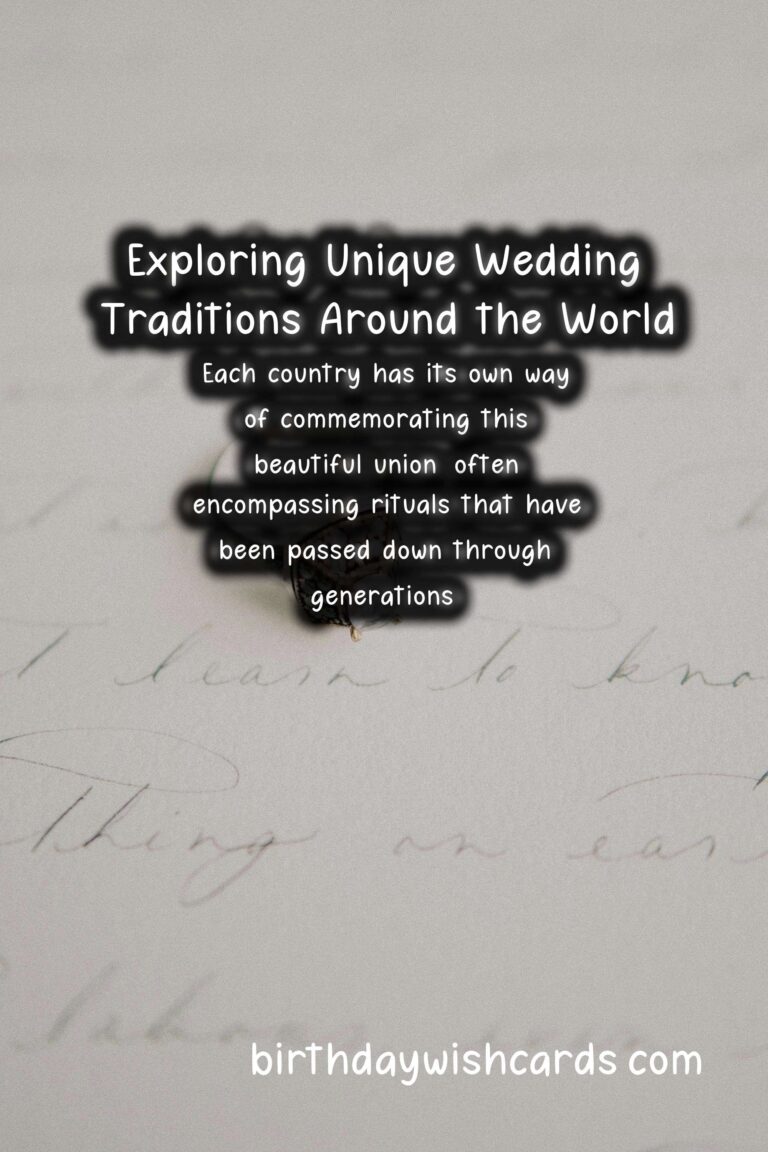 Exploring Unique Wedding
Traditions Around the World
Each country has its own way
of commemorating this
beautiful union often
encompassing rituals that have
been passed down through
generations
learn to
thing on
birthdaywishcards com